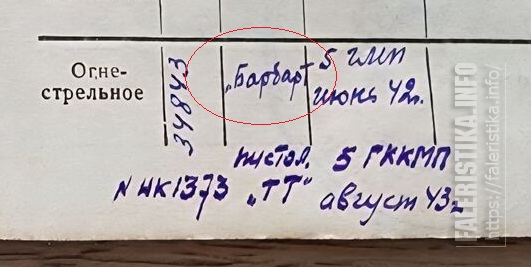 Огне-
стрельное
34843
„Барбарт
5 гмп
июнь 42г.
пистол.
5 ГККМП
N НК1373 „ТТ"
август 43г
FALERISTIKA.INFO
https://faleristika.info/